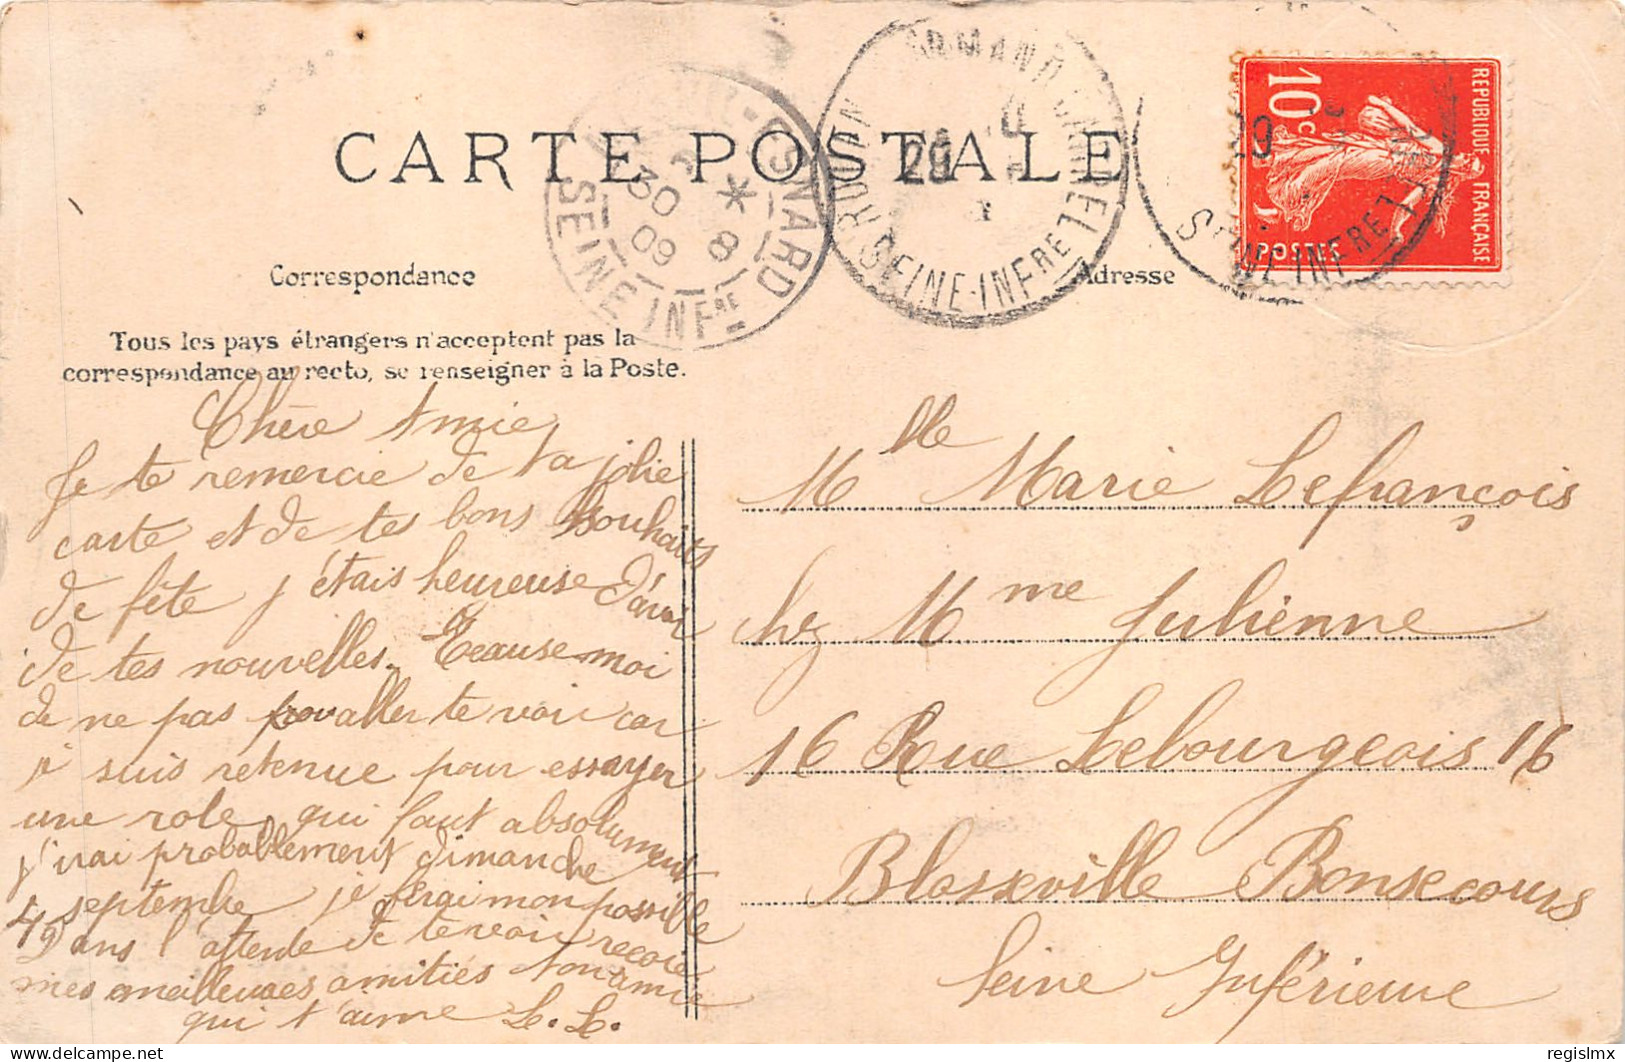 CARTE POSTALE
Correspondance
Adresse
Tous les pays étrangers n'acceptent pas la
correspondance au recto, se renseigner à la Poste.
REPUBLIQUE FRANÇAISE
10c
POSTES
ROUEN ARMAND CARREL
SEINE-INFRE
29
SEINE INFRE
29
30
8
09
SEINE INFRE
Chère Amie
Je te remercie de ta jolie
carte et de tes bons souhaits
de fête j'étais heureuse d'avoir
de tes nouvelles. Excuse-moi
de ne pas aller te voir car
je suis retenue pour essayer
une role qui faut absolument
j'irai probablement dimanche
4 septembre je ferai mon possible
Dans l'attente de te voir reçoie
mes meilleures amitiés ton amie
qui t'aime L. L.
Mlle Marie Lefrançois
chez Mme Julienne
16 Rue Lebourgeois 16
Blosseville Bonsecours
Seine Inférieure
regislmx